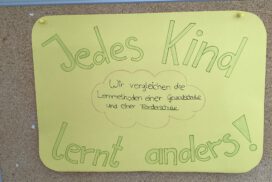 Jedes Kind
Wir vergleichen die
Lernmethoden einer Grundschule
und einer Förderschule
lernt anders!